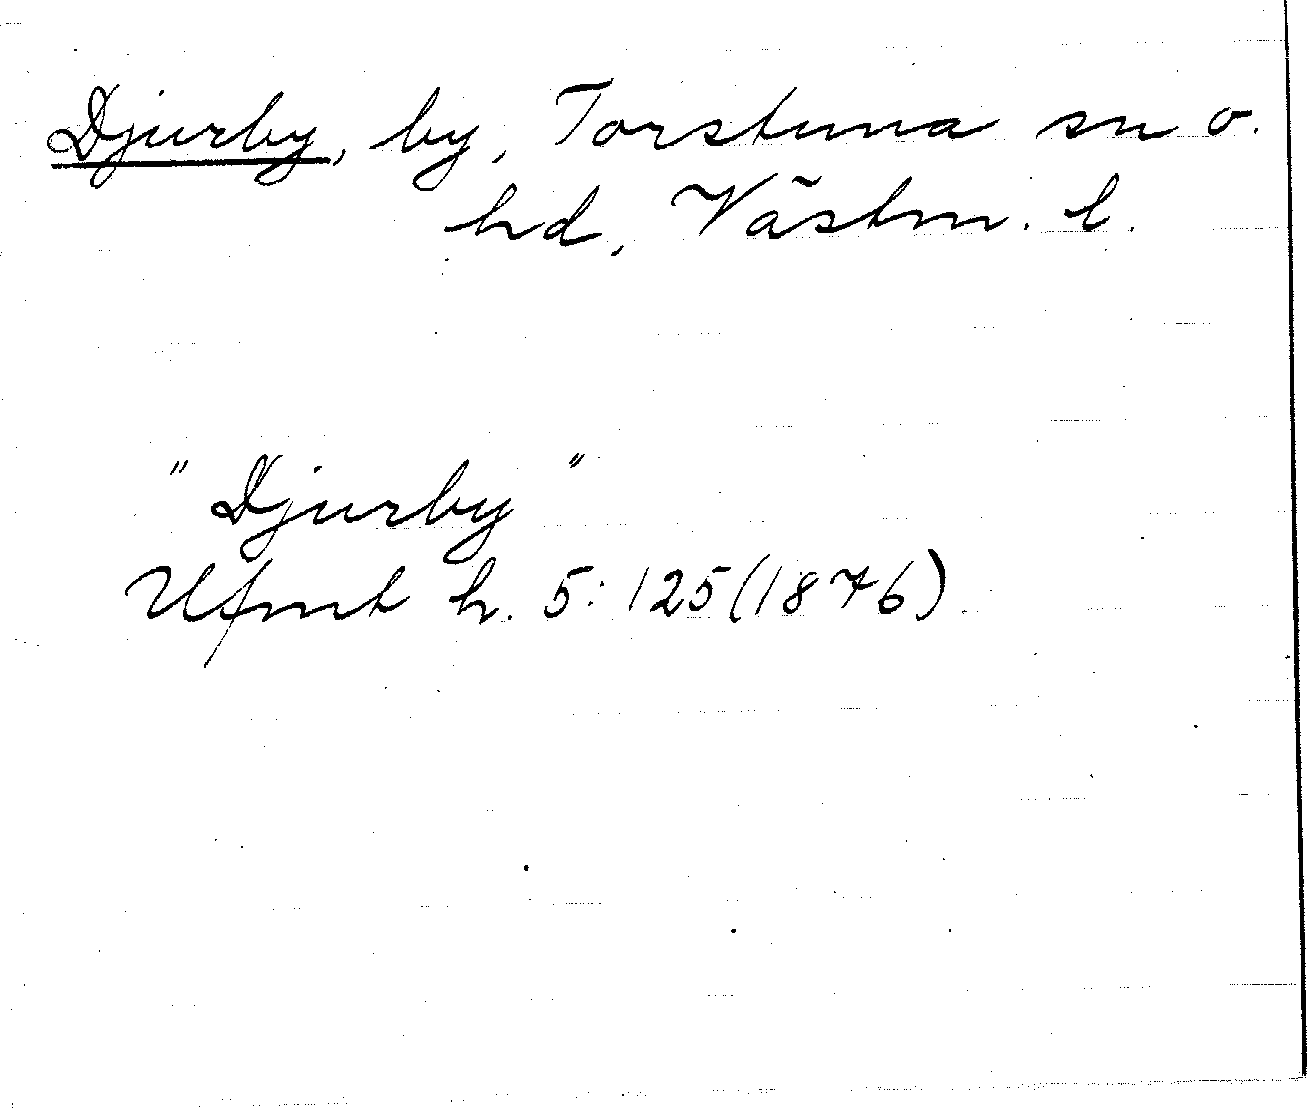 Djurby, by, Torstuna sn o.
hd, Västm. l.
"Djurby"
Ufmt h. 5:125(1876)